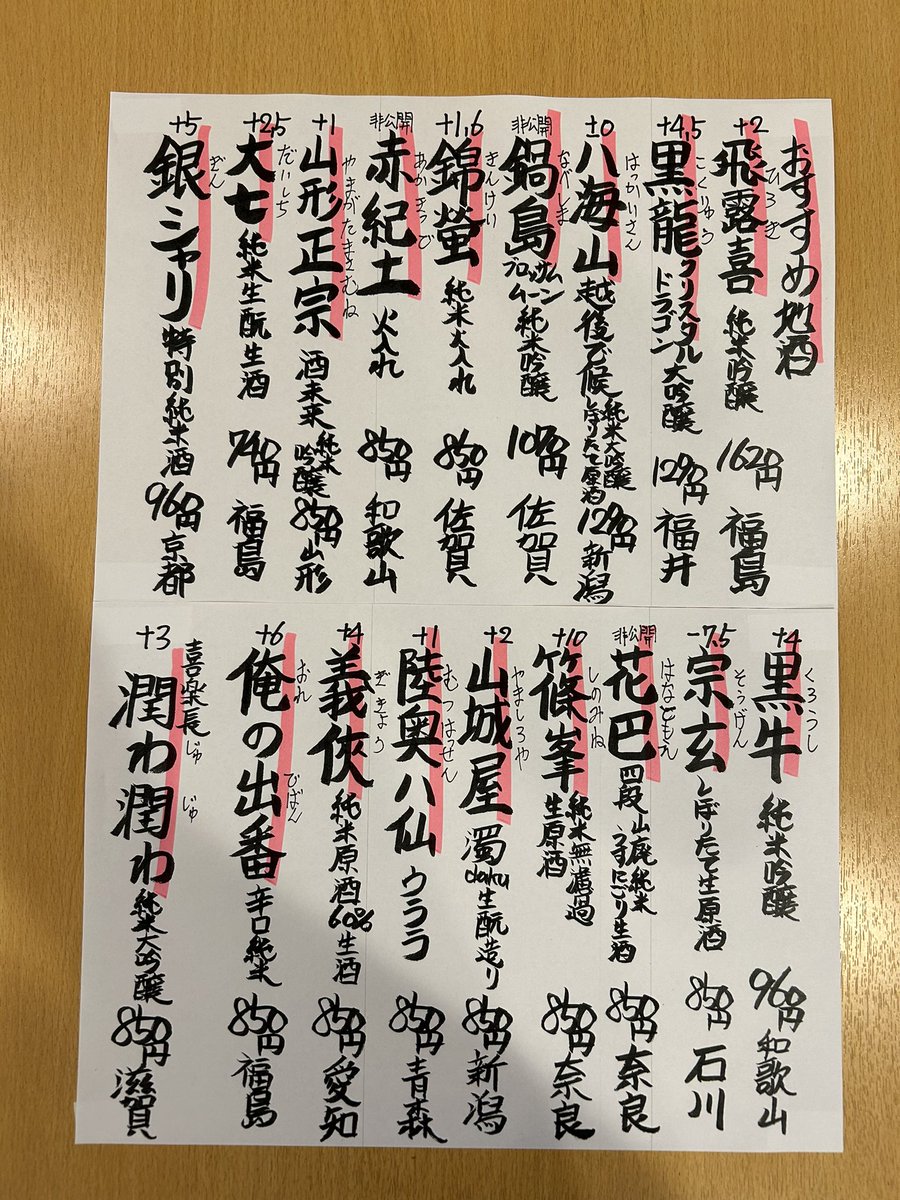 おすすめ地酒
+2
飛露喜 ひろき 純米吟醸 1620円 福島
+4,5
黒龍 こくりゅう クリスタルドラゴン 大吟醸 1290円 福井
±0
八海山 はっかいさん 越後で候 純米大吟醸 しぼりたて原酒 1290円 新潟
非公開
鍋島 なべしま ブロッサムムーン 純米吟醸 1070円 佐賀
+1,6
錦螢 きんけい 純米火入れ 850円 佐賀
非公開
赤紀土 あかきっど 火入れ 850円 和歌山
+1
山形正宗 やまがたまさむね 酒未来 純米吟醸 850円 山形
+2,5
大七 だいしち 純米生酛生酒 740円 福島
+5
銀シャリ ぎん 特別純米酒 960円 京都
+4
黒牛 くろうし 純米吟醸 960円 和歌山
-7,5
宗玄 そうげん しぼりたて生原酒 850円 石川
非公開
花巴 はなともえ 四段 山廃純米 うすにごり生酒 850円 奈良
+10
篠峯 しのみね 純米無濾過生原酒 850円 奈良
+2
山城屋 やましろや 濁 daku 生酛造り 850円 新潟
+1
陸奥八仙 むつはっせん ウララ 850円 青森
+4
義侠 ぎきょう 純米原酒 60% 生酒 850円 愛知
+6
俺の出番 おれ でばん 辛口純米 850円 福島
+3
喜楽長 潤わ潤わ じゅ じゅ 純米大吟醸 850円 滋賀